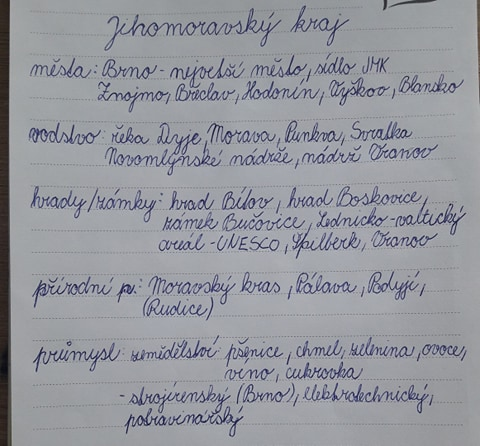 Jihomoravský kraj
města: Brno - největší město, sídlo JMK
Znojmo, Břeclav, Hodonín, Vyškov, Blansko
vodstvo: řeka Dyje, Morava, Punkva, Svratka
Novomlýnské nádrže, nádrž Vranov
hrady/zámky: hrad Bítov, hrad Boskovice,
zámek Bučovice, Lednicko-valtický
areál - UNESCO, Špilberk, Vranov
přírodní p.: Moravský kras, Pálava, Podyjí,
(Rudice)
průmysl: zemědělství: pšenice, chmel, zelenina, ovoce,
víno, cukrovka
- strojírenský (Brno), elektrotechnický,
potravinářský